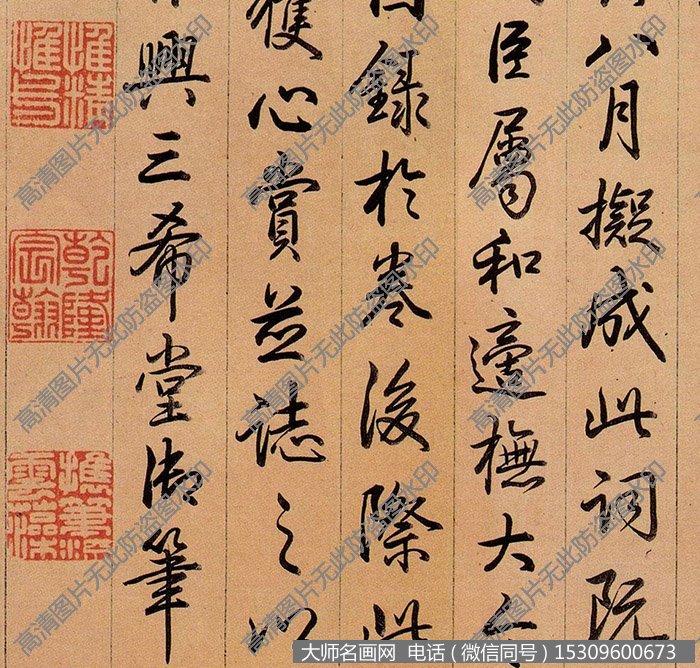 八月擬成此詞既
臣屬和適撫大
錄於卷後際此
獲心賞並誌之以
興三希堂御筆
惟精惟一
乾隆宸翰
高清图片无此防盗图水印
大师名画网 电话（微信同号）15309600673